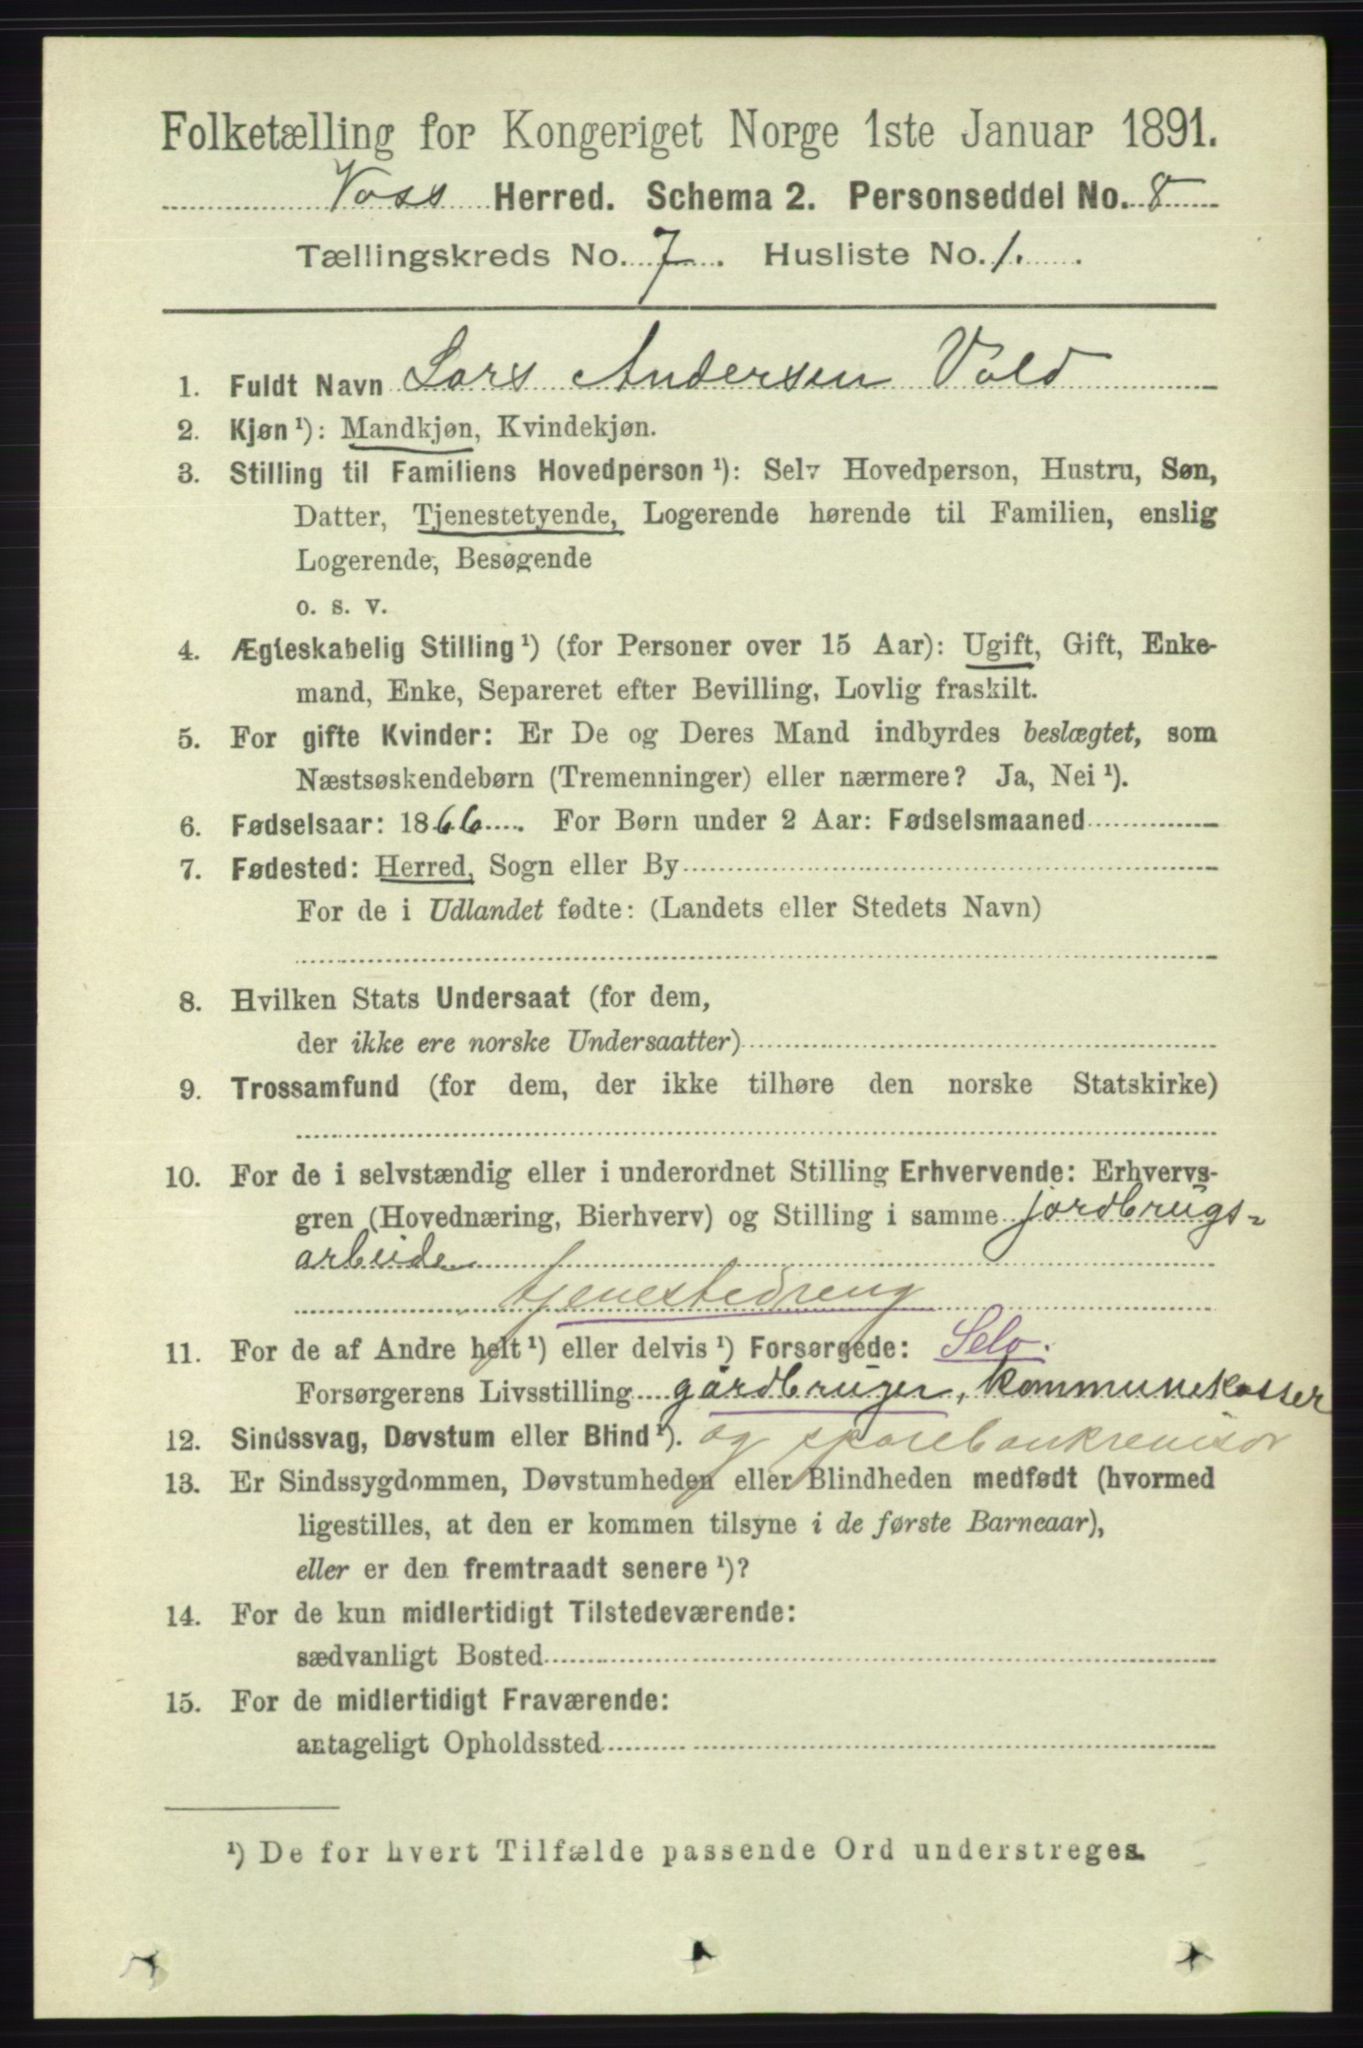 Folketælling for Kongeriget Norge 1ste Januar 1891.
Voss Herred. Schema 2. Personseddel No. 8
Tællingskreds No. 7. Husliste No. 1.
1. Fuldt Navn Lars Andersen Vold
2. Kjøn ¹): Mandkjøn, Kvindekjøn.
3. Stilling til Familiens Hovedperson ¹): Selv Hovedperson, Hustru, Søn,
Datter, Tjenestetyende, Logerende hørende til Familien, enslig
Logerende, Besøgende
o. s. v.
4. Ægteskabelig Stilling ¹) (for Personer over 15 Aar): Ugift, Gift, Enke-
mand, Enke, Separeret efter Bevilling, Lovlig fraskilt.
5. For gifte Kvinder: Er De og Deres Mand indbyrdes beslægtet, som
Næstsøskendebørn (Tremenninger) eller nærmere? Ja, Nei ¹).
6. Fødselsaar: 1866. For Børn under 2 Aar: Fødselsmaaned
7. Fødested: Herred, Sogn eller By
For de i Udlandet fødte: (Landets eller Stedets Navn)
8. Hvilken Stats Undersaat (for dem,
der ikke ere norske Undersaatter)
9. Trossamfund (for dem, der ikke tilhøre den norske Statskirke)
10. For de i selvstændig eller i underordnet Stilling Erhvervende: Erhvervs-
gren (Hovednæring, Bierhverv) og Stilling i samme jordbrugs-
arbeide
tjenestedreng
11. For de af Andre helt ¹) eller delvis ¹) Forsørgede: Selv.
Forsørgerens Livsstilling gårdbruger, kommunekasser
12. Sindssvag, Døvstum eller Blind ¹). og sparebankrevisor
13. Er Sindssygdommen, Døvstumheden eller Blindheden medfødt (hvormed
ligestilles, at den er kommen tilsyne i de første Barneaar),
eller er den fremtraadt senere ¹)?
14. For de kun midlertidigt Tilstedeværende:
sædvanligt Bosted
15. For de midlertidigt Fraværende:
antageligt Opholdssted
¹) De for hvert Tilfælde passende Ord understreges.